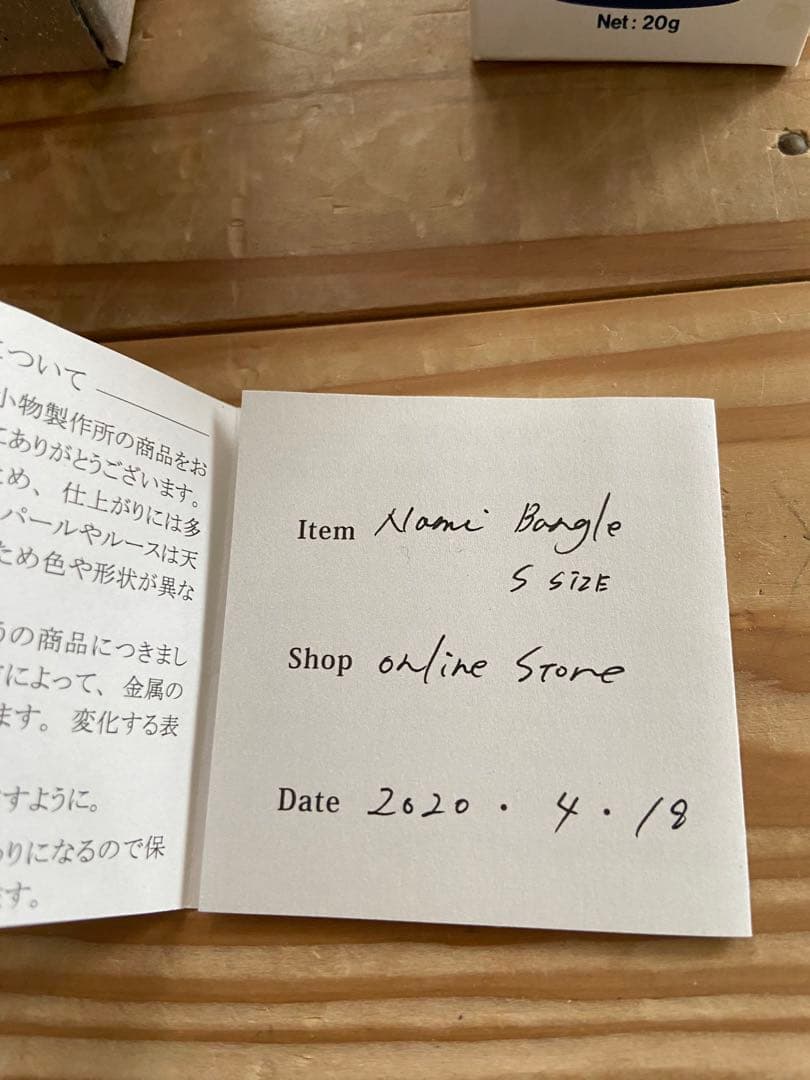 Net: 20g
について
小物製作所の商品をお
にありがとうございます。
ため、仕上がりには多
パールやルースは天
ため色や形状が異な
うの商品につきまし
によって、金属の
ます。変化する表
すように。
わりになるので保
ます。
Item Nami Bangle
S SIZE
Shop online Store
Date 2020・4・18